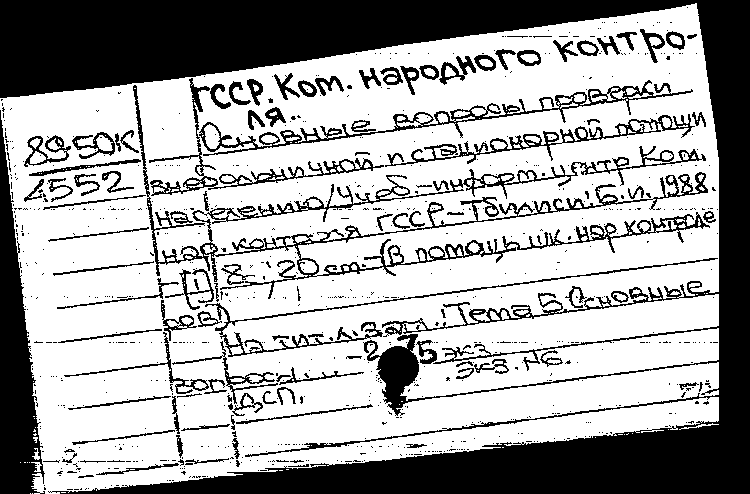 ГССР. Ком. народного контро-
ля.
89-50К
4552
Основные вопросы проверки
внебольничной и стационарной помощи
населению/Учеб.-информ. центр Ком.
нар. контроля ГССР.-Тбилиси: Б.и., 1988.
-[1], 8 с.; 20 см.-(В помощь шк. нар контроле
ров).
На тит. л. загл.: Тема 5. Основные
вопросы...
275 экз.
Экз. №6.
ДСП.